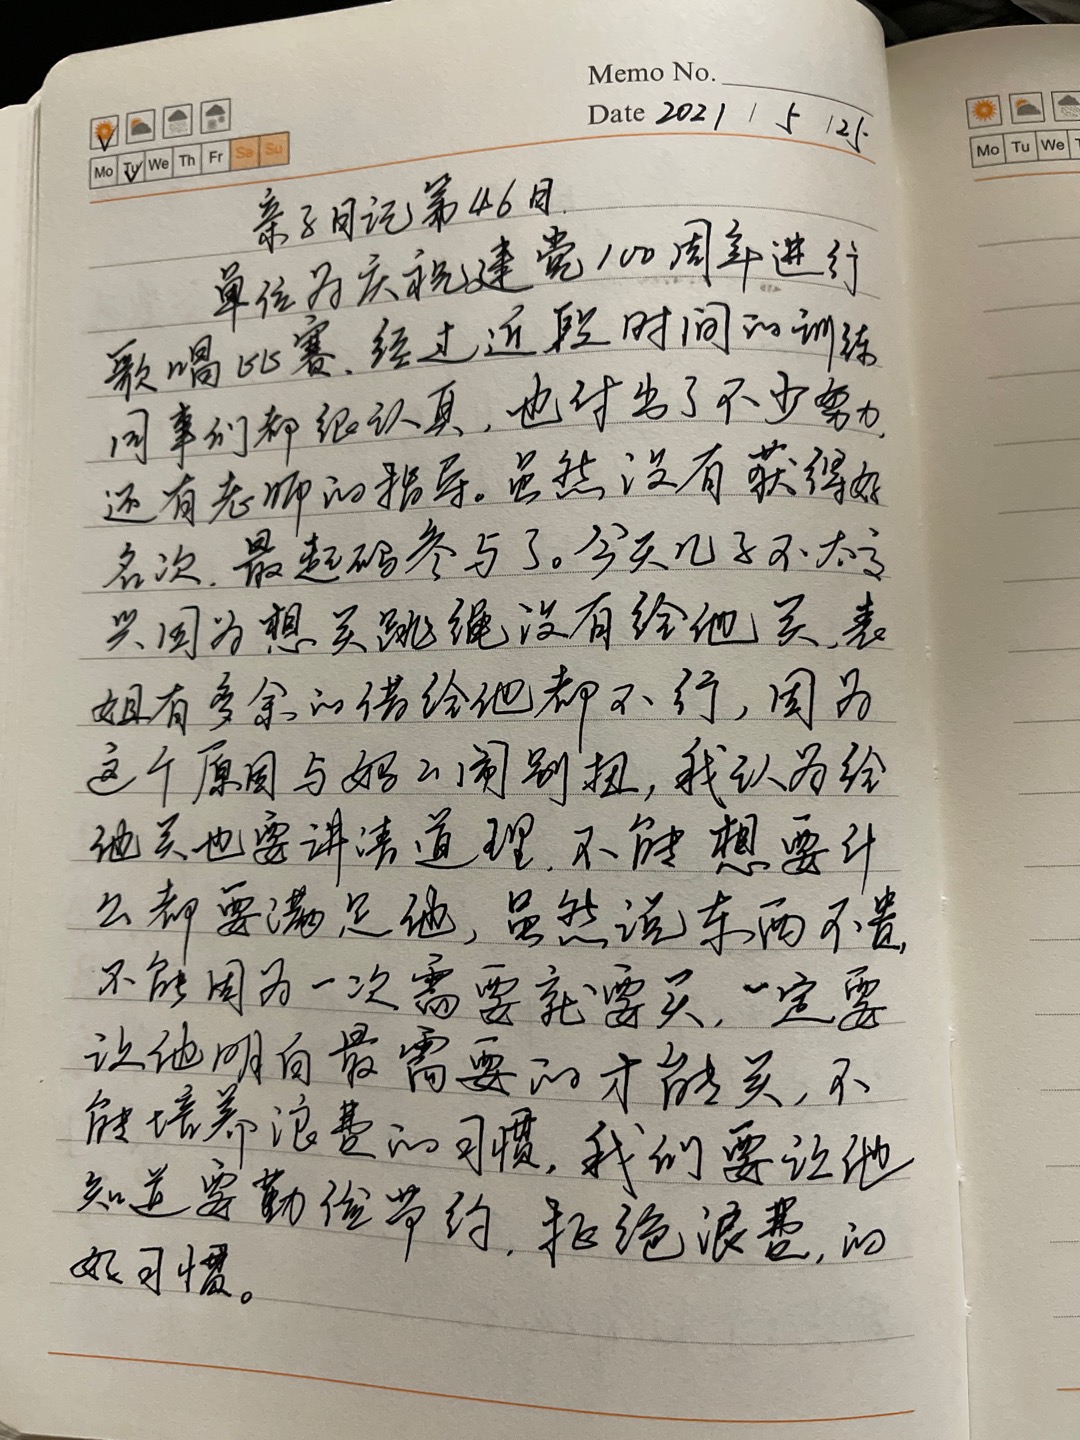 Memo No.
Date 2021 / 5 / 25
Mo Tu We Th Fr Sa Su
Mo Tu We T
亲子日记第46日.
单位为庆祝建党100周年进行
歌唱比赛、经过近段时间的训练
同事们都很认真，也付出了不少努力，
还有老师的指导。虽然没有获得好
名次，最起码参与了。今天儿子不太高
兴因为想买跳绳没有给他买，表
姐有多余的借给他都不行，因为
这个原因与妈么闹别扭，我认为给
他买也要讲清道理，不能想要什
么都要满足他，虽然说东西不贵，
不能因为一次需要就要买，一定要
让他明白最需要的才能买，不
能培养浪费的习惯，我们要让他
知道要勤俭节约，拒绝浪费，的
好习惯。